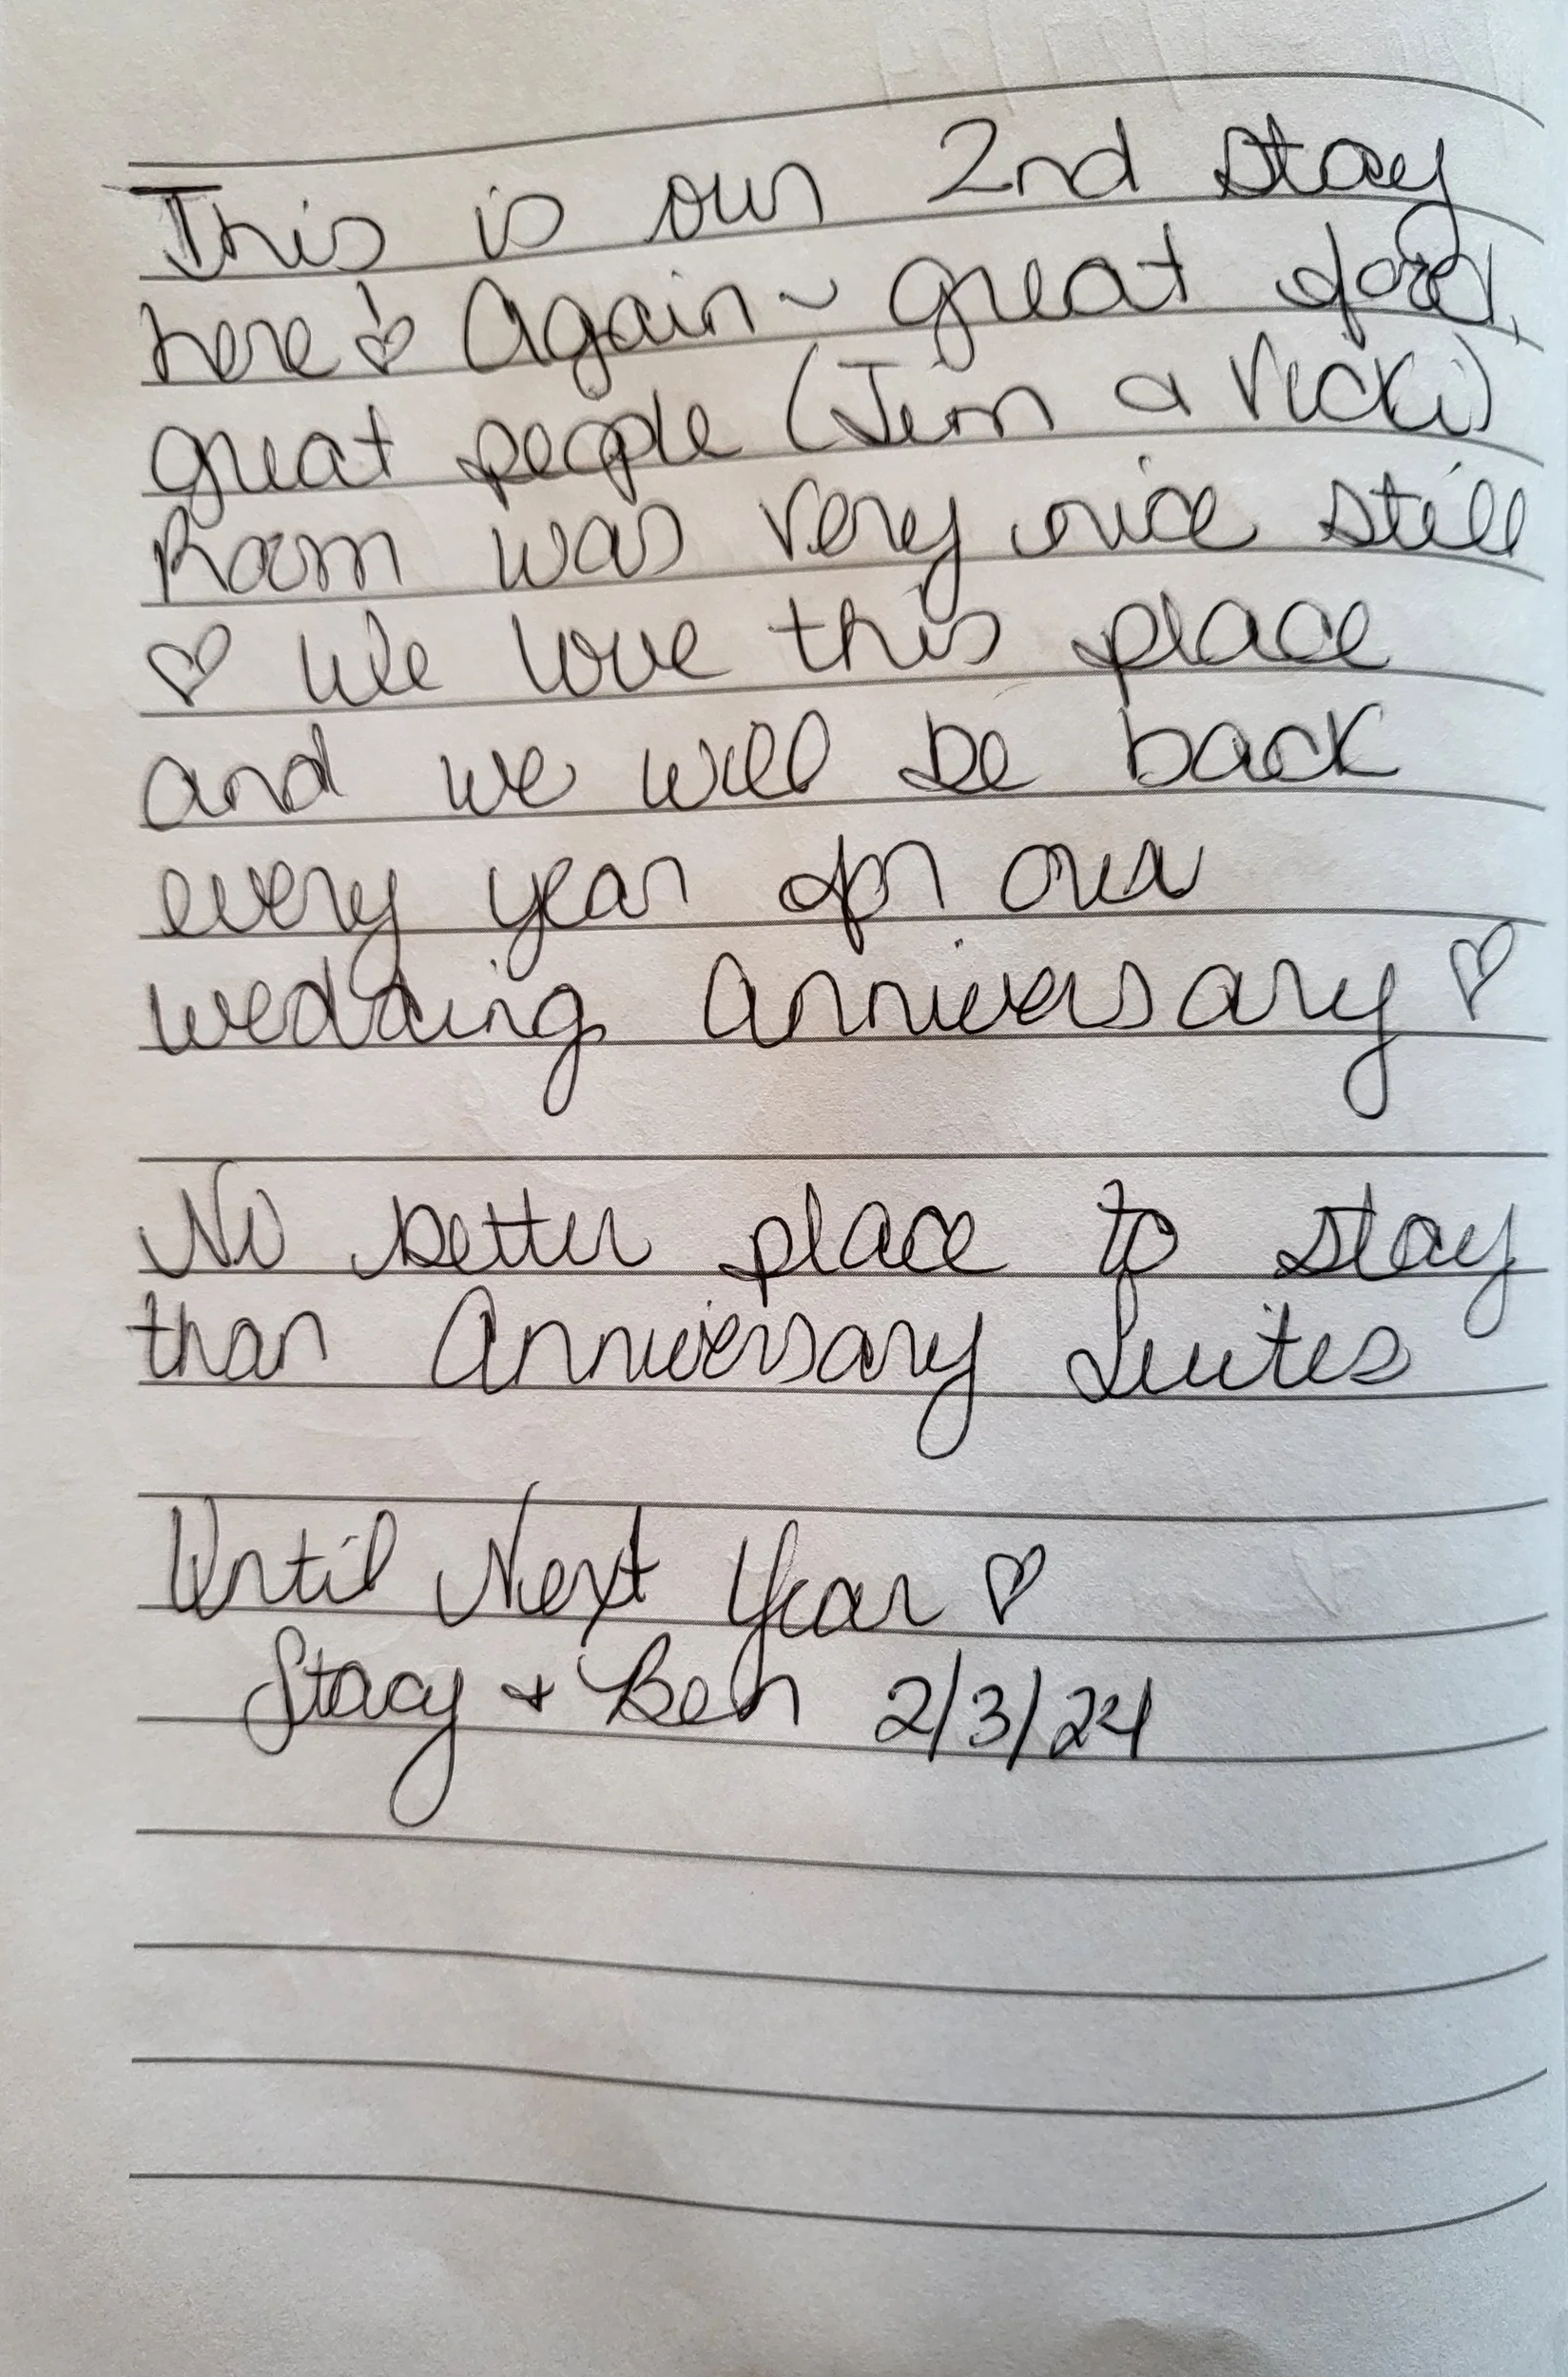 This is our 2nd stay
here! ♡ Again ~ great food,
great people (Jim & Vicki)
Room was very nice still
♡ We love this place
and we will be back
every year for our
wedding anniversary ♡
No better place to stay
than Anniversary Suites
Until Next Year ♡
Stacy + Ben 2/3/24